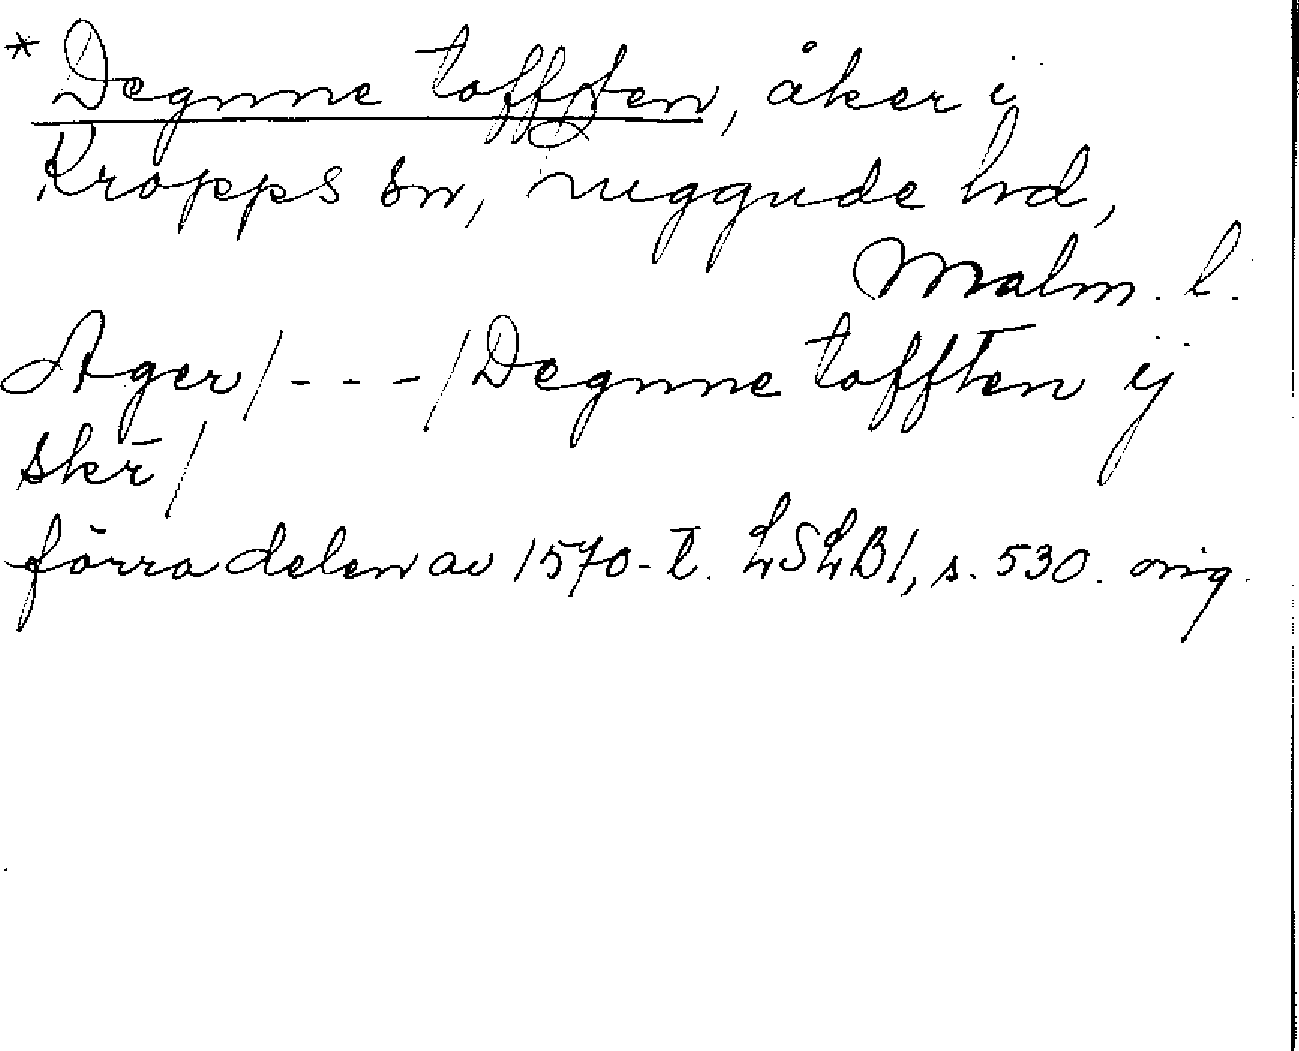 * Degnne tofften, åker i
Kropps sn, Luggude hd,
Malm. l.
Ager/- - -/Degnne tofften ij
skr̄/
förra delen av 1570-t. LSLB1, s. 530. orig.